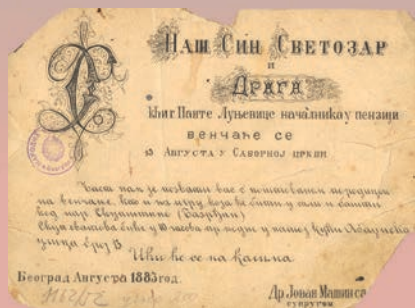 Наш Син Светозар
и
Драга
кћи г. Панте Луњевице начелника у пензији
венчаће се
13 Августа у Саборној цркви
Част нам је позвати вас с поштованом породицом
на венчање, као и на игру која ће бити у сали и башти
код
Скуп сватова биће у 10 часова пре подне у нашој кући
улица број 13
Ићи ће се на колима
Београд Августа 1883 год.
Др Јован Машин са
супругом